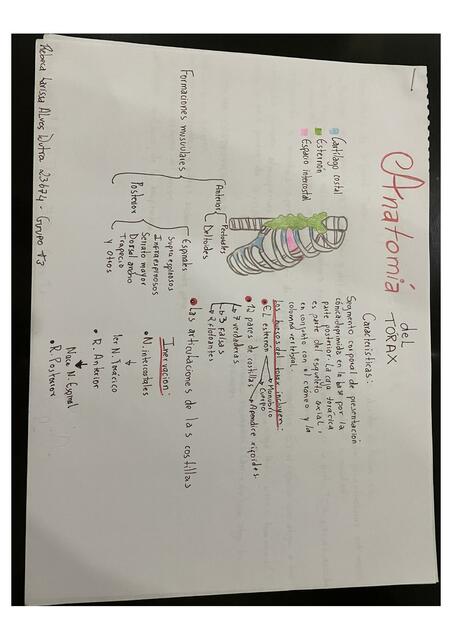 Anatomía
del
TORAX
Características:
Segmento corporal de presentación
cónica deprimida en la base por la
parte posterior. La caja torácica
es parte de esqueleto axial,
en conjunto con el cráneo y la
columna vertebral.
Cartílago costal
Esternón
Espacio intercostal
Los huesos del torax incluyen:
El esternón → Manubrio
→ Cuerpo
→ Apendice xifoides
12 pares de costillas
↳ 7 verdaderas
↳ 3 falsas
↳ 2 flotantes
Las articulaciones de las costillas
Formaciones musculares
Anterior
Pectorales
Deltoides
Posterior
Espinales
Supraespinosos
Infraespinosos
Serrato mayor
Dorsal ancho
Trapecio
y otros
Inervacion:
N. intercostales
↓
1er N. Torácico
R. Anterior
Nace N. Espinal
R. Posterior
Rebeca Larissa Alves Dutra 23674 - Grupo #3